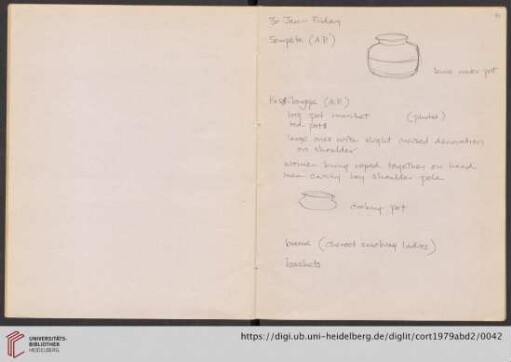 Jan - Friday
Sompeta (A.P.)
water pot
(A.P.)
big pot market (photos)
red pots
large ones with slight incised decoration
on shoulder
women bring roped together on head
men carry by shoulder pole
cooking pot
(cheroot smoking ladies)
baskets
UNIVERSITÄTS-
BIBLIOTHEK
HEIDELBERG
https://digi.ub.uni-heidelberg.de/diglit/cort1979abd2/0042